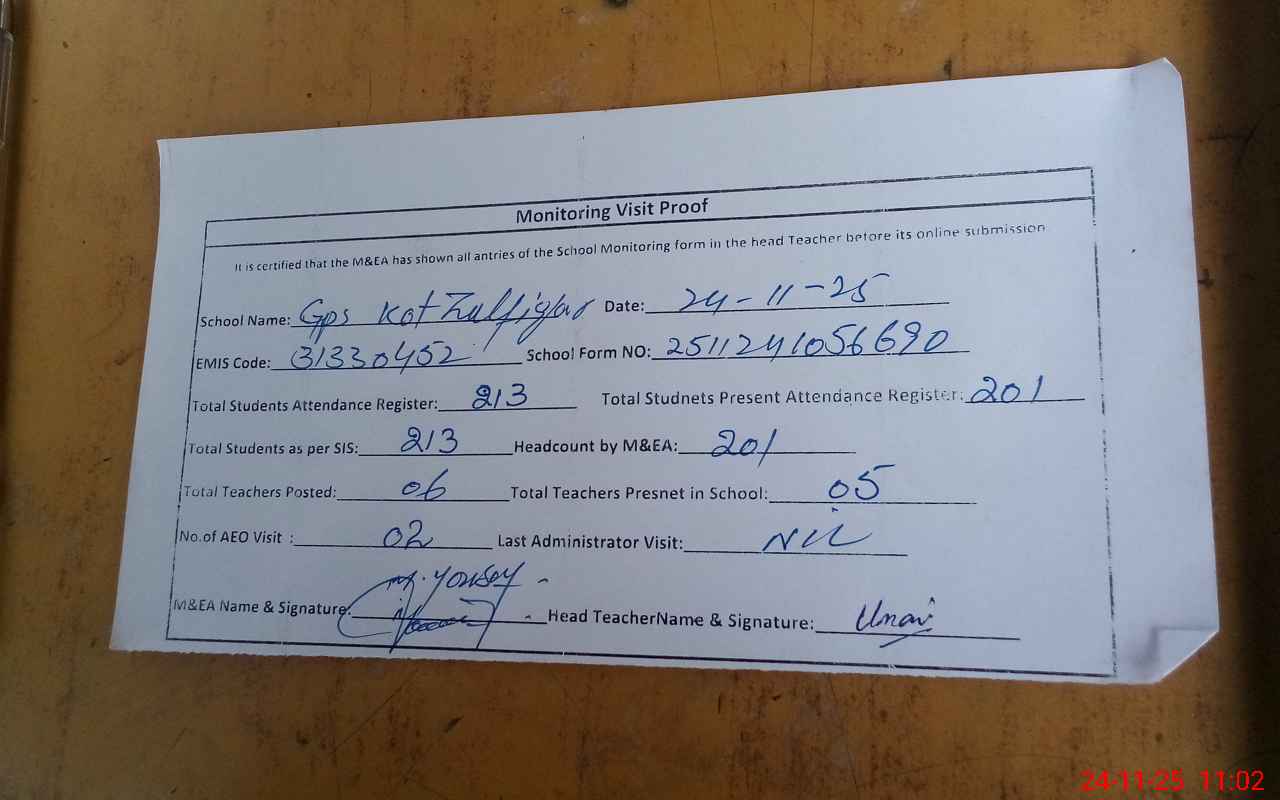 Monitoring Visit Proof
It is certified that the M&EA has shown all antries of the School Monitoring form in the head Teacher before its online submission
School Name: Gps Kot Zulfiqar Date: 24-11-25
EMIS Code: 31330452 School Form NO: 2511241056690
Total Students Attendance Register: 213 Total Studnets Present Attendance Register: 201
Total Students as per SIS: 213 Headcount by M&EA: 201
Total Teachers Posted: 06 Total Teachers Presnet in School: 05
No.of AEO Visit : 02 Last Administrator Visit: Nil
M&EA Name & Signature: M. Yousaf Head TeacherName & Signature:
24-11-25 11:02